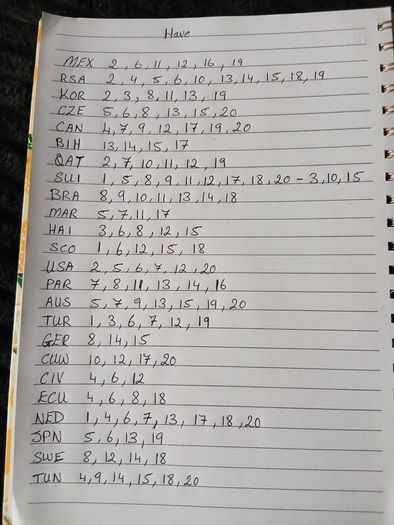 Have
MEX 2, 6, 11, 12, 16, 19
RSA 2, 4, 5, 6, 10, 13, 14, 15, 18, 19
KOR 2, 3, 8, 11, 13, 19
CZE 5, 6, 8, 13, 15, 20
CAN 4, 7, 9, 12, 17, 19, 20
BIH 13, 14, 15, 17
QAT 2, 7, 10, 11, 12, 19
SUI 1, 5, 8, 9, 11, 12, 17, 18, 20 - 3, 10, 15
BRA 8, 9, 10, 11, 13, 14, 18
MAR 5, 7, 11, 17
HAI 3, 6, 8, 12, 15
SCO 1, 6, 12, 15, 18
USA 2, 5, 6, 7, 12, 20
PAR 7, 8, 11, 13, 14, 16
AUS 5, 7, 9, 13, 15, 19, 20
TUR 1, 3, 6, 7, 12, 19
GER 8, 14, 15
CUW 10, 12, 17, 20
CIV 4, 6, 12
ECU 4, 6, 8, 18
NED 1, 4, 6, 7, 13, 17, 18, 20
JPN 5, 6, 13, 19
SWE 8, 12, 14, 18
TUN 4, 9, 14, 15, 18, 20